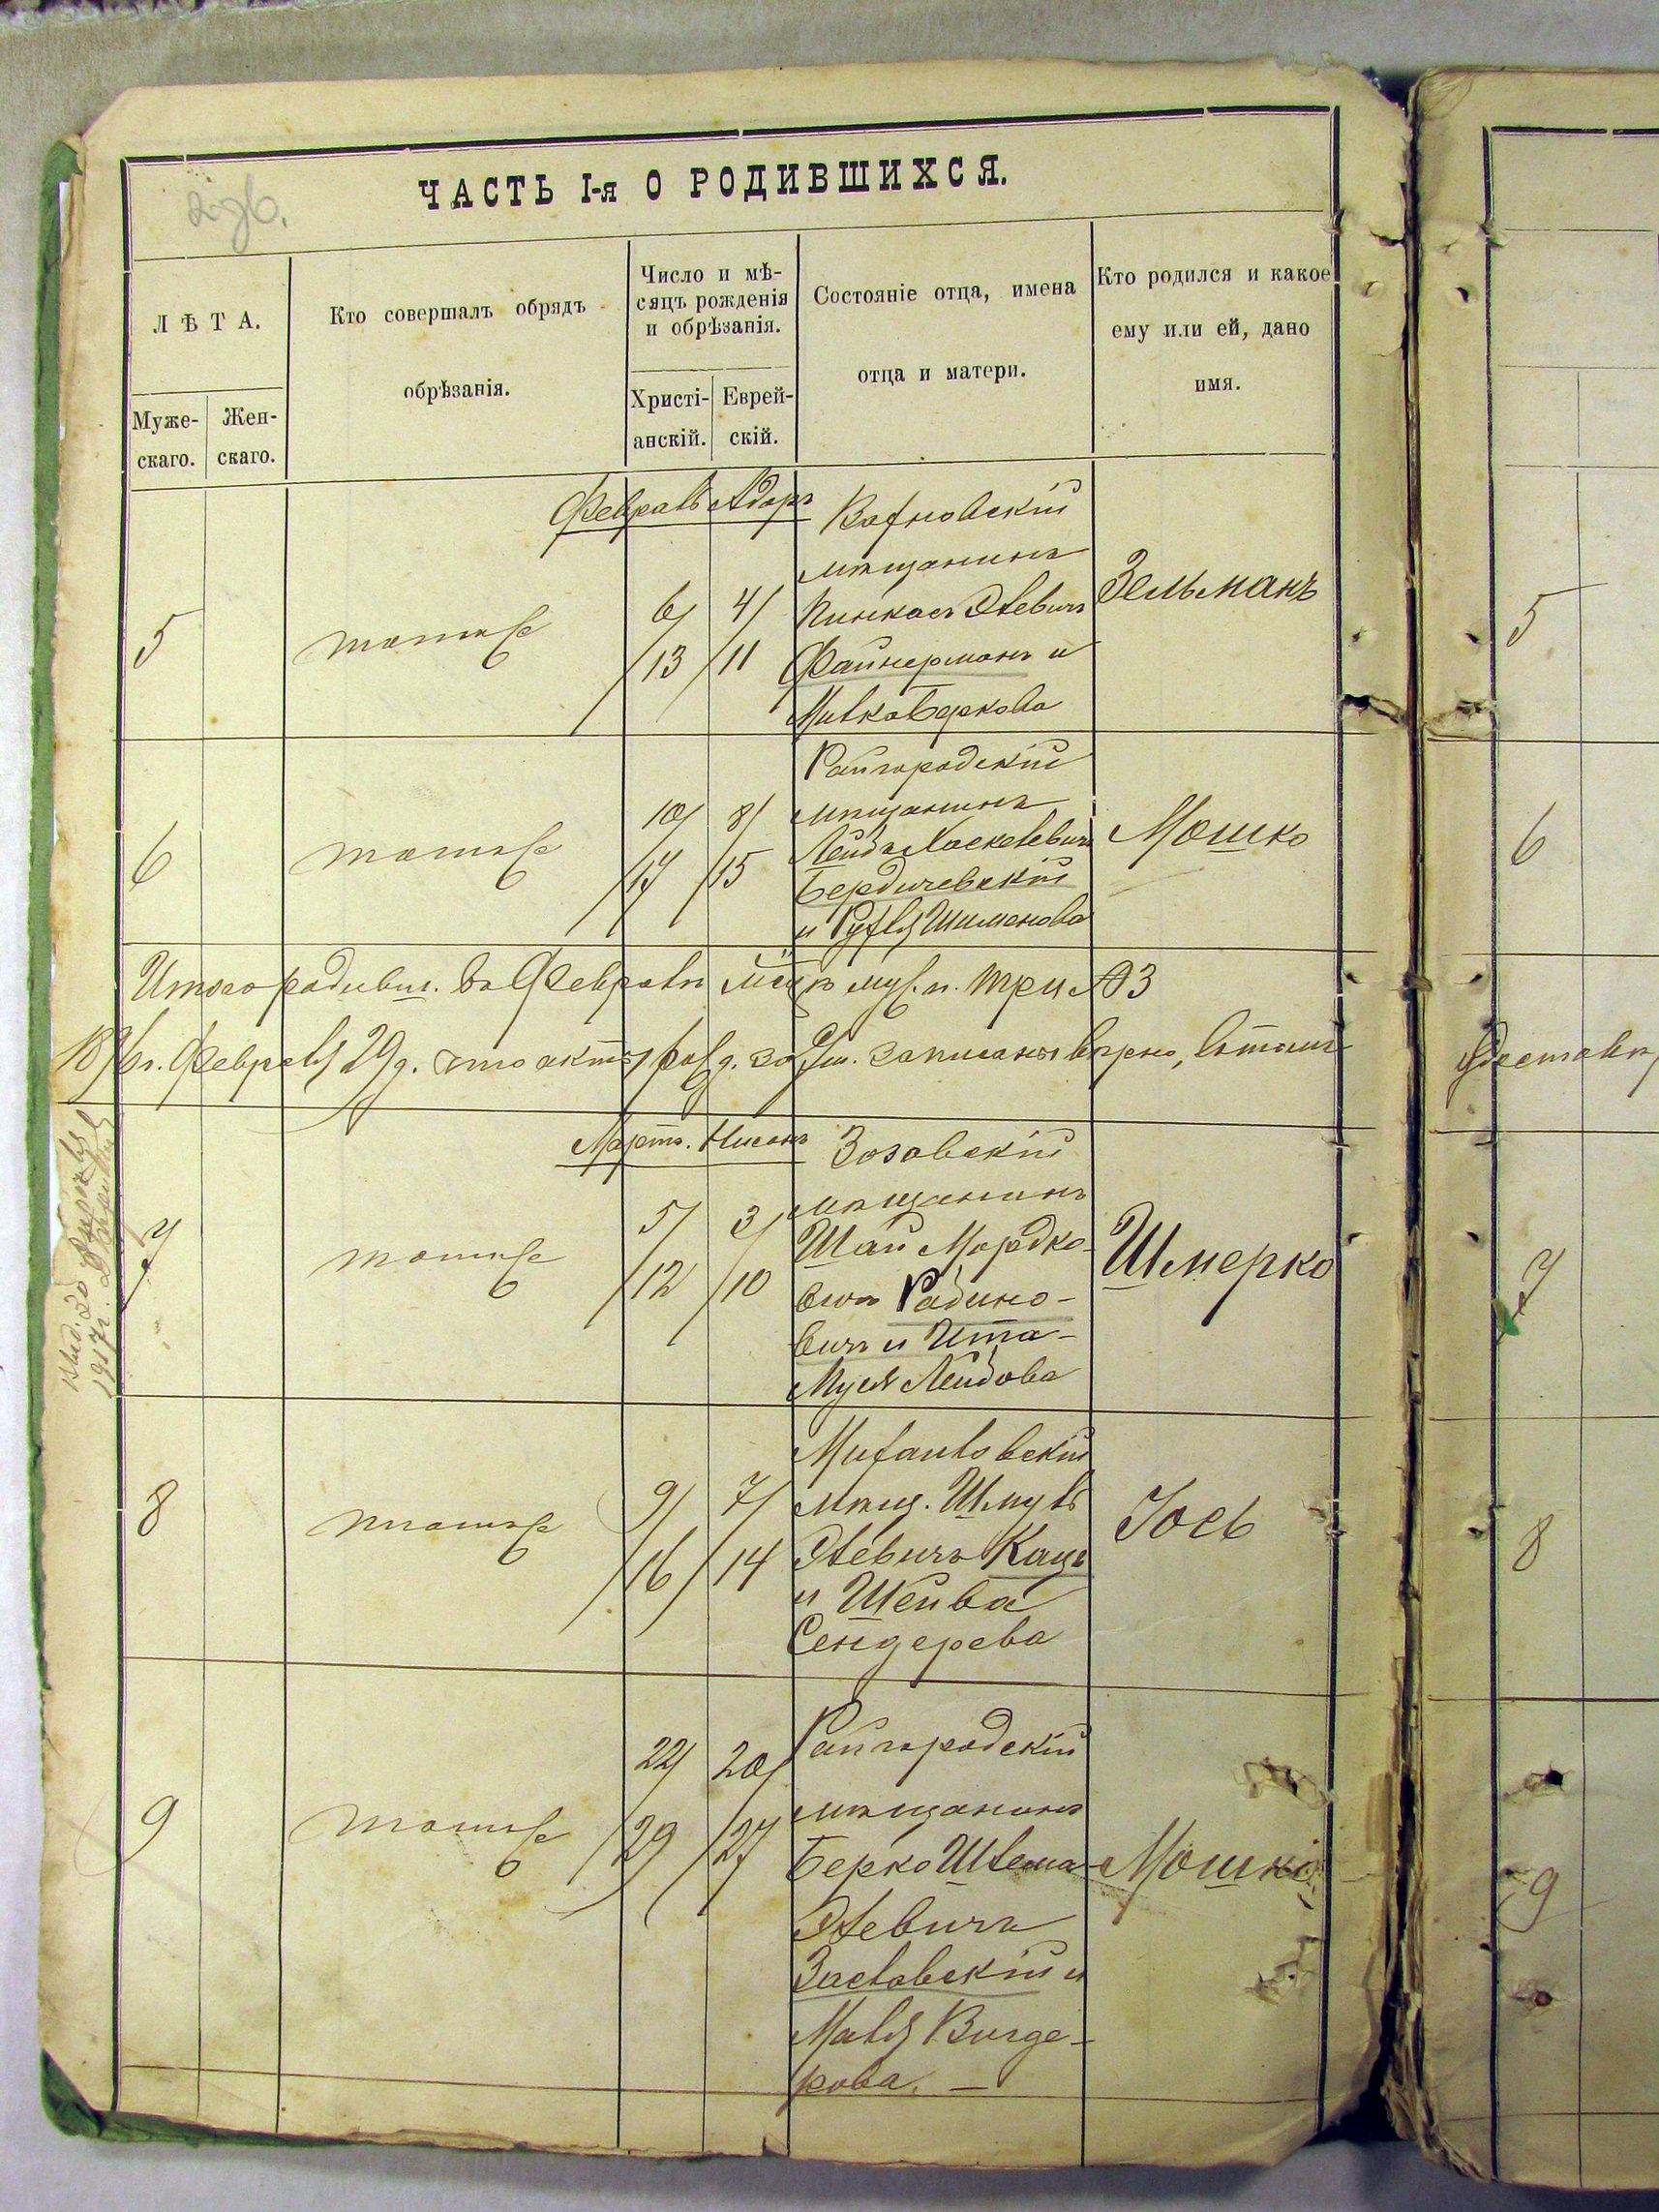 ЧАСТЬ I-я О РОДИВШИХСЯ.
ЛѢТА.
Муже-
скаго.
Жен-
скаго.
Кто совершалъ обрядъ
обрѣзанія.
Число и мѣ-
сяцъ рожденія
и обрѣзанія.
Христі-
анскій.
Еврей-
скій.
Состояніе отца, имена
отца и матери.
Кто родился и какое
ему или ей, дано
имя.
Февраль Адаръ
5
тотже
6/13
4/11
мѣщанинъ
Пинкасъ Элевичъ
Файнерманъ и
Малка Беркова
Зельманъ
6
тотже
10/17
8/15
Райгородскій
мѣщанинъ
Лейбъ Хаскелевичъ
Бердичевскій
и Рухля Шимонова
Мошко
Итого родивш. въ Февралѣ м-цѣ муж. п. три 3
1876г. Февраля 29 д.
записаны вѣрно, въ томъ
Мартъ. Нисонъ
7
тотже
5/12
3/10
Зозовскій
мѣщанинъ
Шай Мордко-
вичъ Рабино-
вичъ и Ита-
Муся Лейбова
Шмерко
8
тотже
9/16
7/14
мѣщ. Шмуль
Элевичъ Кацъ
и Шейва
Сендерова
Іось
9
тотже
22/29
20/27
Райгородскій
мѣщанинъ
Берко Шлема
Элевичъ
Заславскій и
Маля Вигде-
рова. —
Мошко
5
6
7
8
9